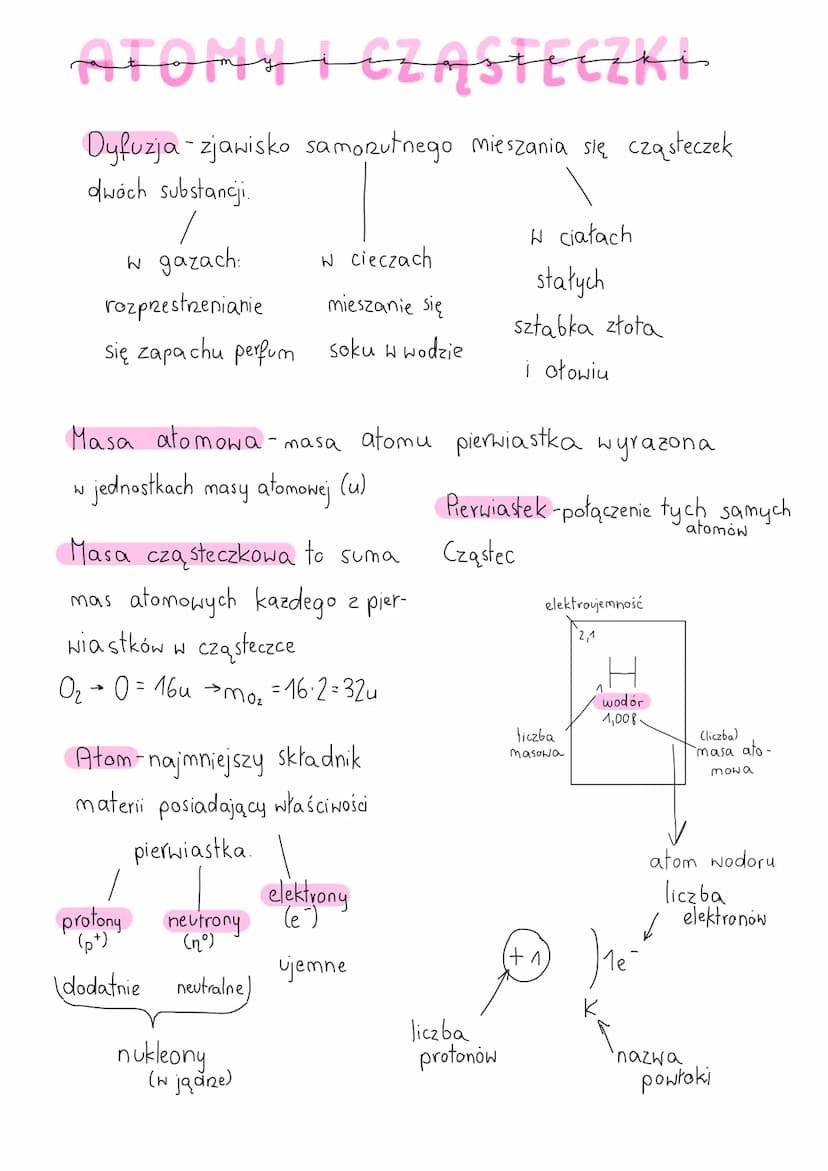 ATOMY I CZĄSTECZKI
atomy i cząsteczki
Dyfuzja - zjawisko samorzutnego mieszania się cząsteczek
dwóch substancji.
w gazach:
rozprzestrzenianie
się zapachu perfum
w cieczach
mieszanie się
soku w wodzie
w ciałach
stałych
sztabka złota
i ołowiu
Masa atomowa - masa atomu pierwiastka wyrażona
w jednostkach masy atomowej (u)
Pierwiastek - połączenie tych samych
atomów
Cząstec
Masa cząsteczkowa to suma
mas atomowych każdego z pier-
wiastków w cząsteczce
O₂ → O = 16u → mo₂ = 16·2 = 32u
elektroujemność
2,1
H
1
wodór
1,008
liczba
masowa
(liczba)
masa ato-
mowa
Atom - najmniejszy składnik
materii posiadający właściwości
pierwiastka.
protony
(p⁺)
dodatnie
neutrony
(n⁰)
neutralne
elektrony
(e⁻)
ujemne
nukleony
(w jądrze)
atom wodoru
liczba
elektronów
+1
1e⁻
K
liczba
protonów
nazwa
powłoki